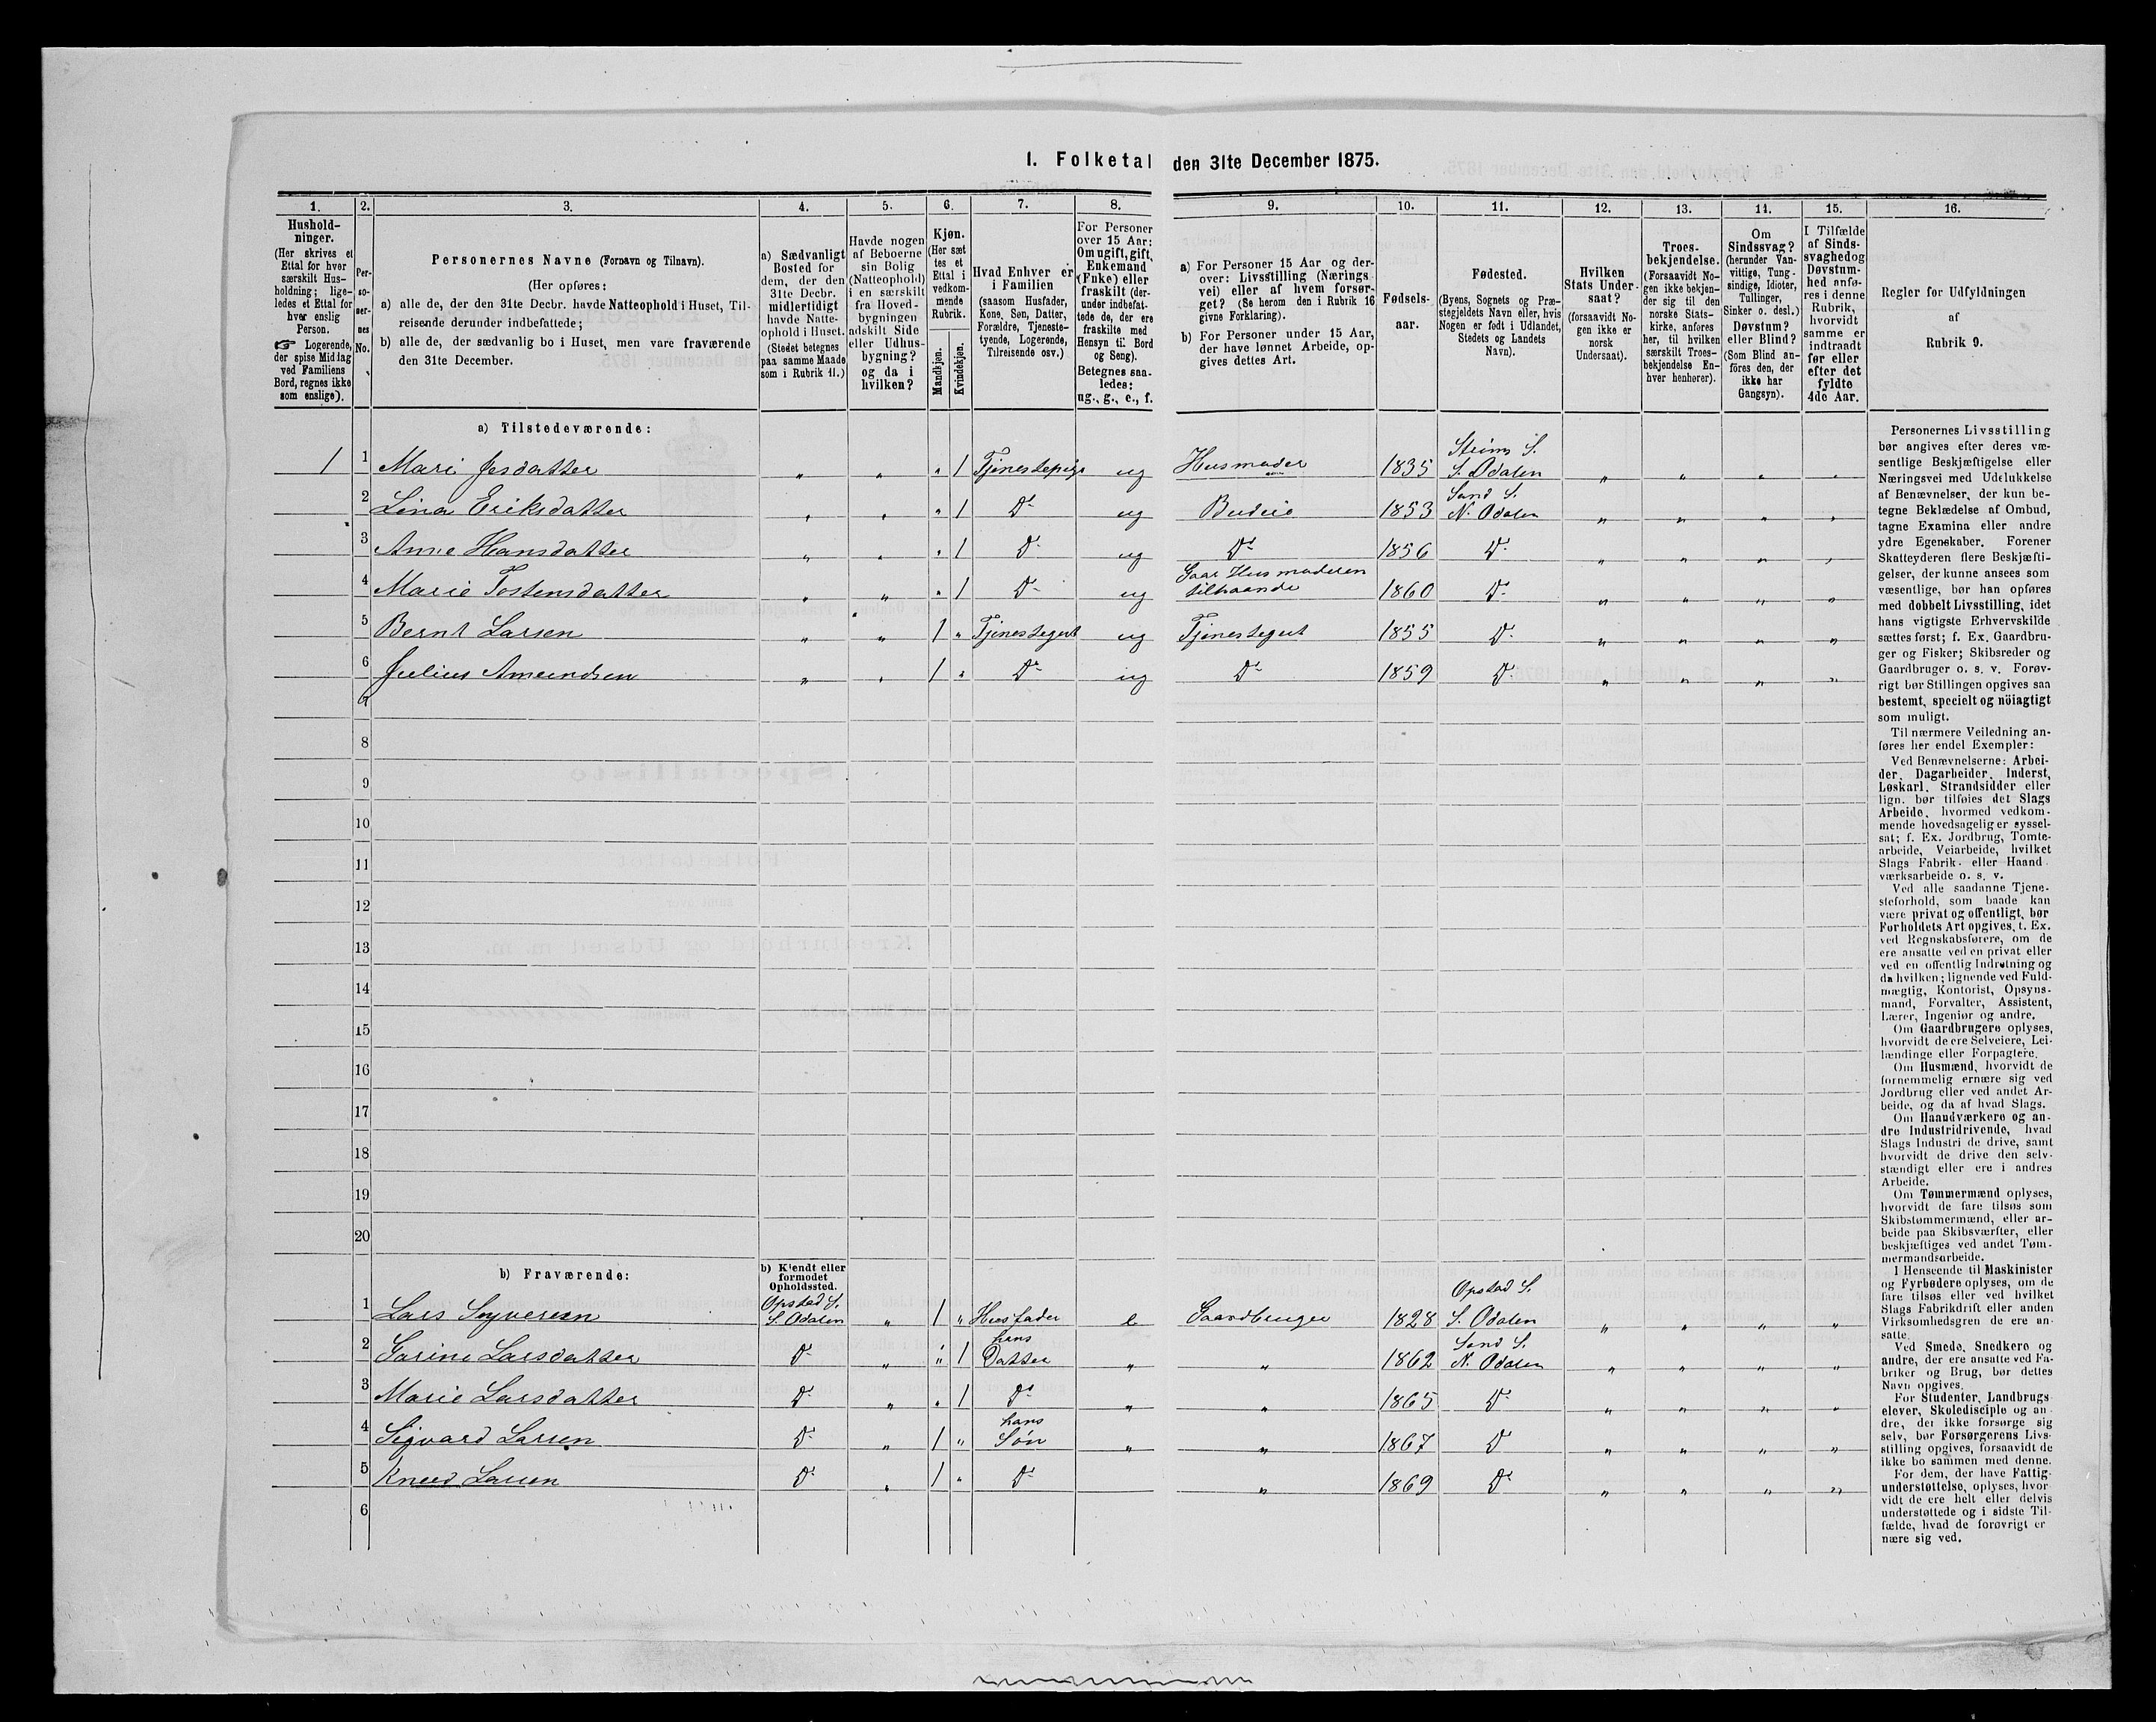 1. Folketal den 31te December 1875.
1.
Hushold-
ninger.
(Her skrives et
Ettal for hver
særskilt Hus-
holdning; lige-
ledes et Ettal for
hver enslig
Person.
☞ Logerende,
der spise Middag
ved Familiens
Bord, regnes ikke
som enslige).
2.
Per-
so-
ner-
nes
No.
3.
Personernes Navne (Fornavn og Tilnavn).
(Her opføres:
a) alle de, der den 31te Decbr. havde Natteophold i Huset, Til-
reisende derunder indbefattede;
b) alle de, der sædvanlig bo i Huset, men vare fraværende
den 31te December.
4.
a) Sædvanligt
Bosted for
dem, der den
31te Decbr.
midlertidigt
havde Natte-
ophold i Huset.
(Stedet betegnes
paa samme Maade
som i Rubrik 11.)
5.
Havde nogen
af Beboerne
sin Bolig
(Natteophold)
i en særskilt
fra Hoved-
bygningen
adskilt Side
eller Udhus-
bygning?
og da i
hvilken?
6.
Kjøn.
(Her sæt
tes et
Ettal i
vedkom-
mende
Rubrik.
Mandkjøn.
Kvindekjøn.
7.
Hvad Enhver er
i Familien
(saasom Husfader,
Kone, Søn, Datter,
Forældre, Tjeneste-
tyende, Logerende,
Tilreisende osv.)
8.
For Personer
over 15 Aar:
Om ugift, gift,
Enkemand
(Enke) eller
fraskilt (der-
under indbefat-
tede de, der ere
fraskilte med
Hensyn til Bord
og Seng).
Betegnes saa-
ledes:
ug., g., e., f.
9.
a) For Personer 15 Aar og der-
over: Livsstilling (Nærings
vei) eller af hvem forsør-
get? (Se herom den i Rubrik 16
givne Forklaring).
b) For Personer under 15 Aar,
der have lønnet Arbeide, op-
gives dettes Art.
10.
Fødsels-
aar.
11.
Fødested.
(Byens, Sognets og Præ-
stegjeldets Navn eller, hvis
Nogen er født i Udlandet,
Stedets og Landets
Navn).
12.
Hvilken
Stats Under-
saat?
(forsaavidt No-
gen ikke er
norsk
Undersaat).
13.
Troes-
bekjendelse.
(Forsaavidt No-
gen ikke bekjen-
der sig til den
norske Stats-
kirke, anføres
her, til hvilken
særskilt Troes-
bekjendelse En-
hver henhører).
14.
Om
Sindssvag?
(herunder Van-
vittige, Tung-
sindige, Idioter,
Tullinger,
Sinker o. desl.)
Døvstum?
eller Blind?
(Som Blind an-
føres den, der
ikke har
Gangsyn).
15.
I Tilfælde
af Sinds-
svaghed og
Døvstum-
hed anfø-
res i denne
Rubrik,
hvorvidt
samme er
indtraadt
før eller
efter det
fyldte
4de Aar.
16.
Regler for Udfyldningen
af
Rubrik 9.
a) Tilstedeværende:
1 1 Mari Jesdatter „ „ „ 1 Tjenestepige ug Husmoder 1835 Strøms S. S. Odalen „ „ „ „
2 Lina Eriksdatter „ „ „ 1 Do ug Budeie 1853 Sand S. N. Odalen „ „ „ „
3 Anne Hansdatter „ „ „ 1 Do ug Do 1856 Do „ „ „ „
4 Marie Tostensdatter „ „ „ 1 Do ug Gaar Husmoderen tilhaande 1860 Do „ „ „ „
5 Bernt Larsen „ „ 1 „ Tjenestegut ug Tjenestegut 1855 Do „ „ „ „
6 Julius Amundsen „ „ 1 „ Do ug Do 1859 Do „ „ „ „
7
8
9
10
11
12
13
14
15
16
17
18
19
20
b) Fraværende:
b) Kjendt eller
formodet
Opholdssted.
1 Lars Syversen Opstad S. S. Odalen „ 1 „ Husfader e Gaardbruger 1828 Opstad S. S. Odalen „ „ „ „
2 Garine Larsdatter Do „ „ 1 hans Datter „ „ 1862 Sand S. N. Odalen „ „ „ „
3 Marie Larsdatter Do „ „ 1 Do „ „ 1865 Do „ „ „ „
4 Sigvard Larsen Do „ 1 „ hans Søn „ „ 1867 Do „ „ „ „
5 Knud Larsen Do „ 1 „ Do „ 1869 Do „ „ „ „
6
Personernes Livsstilling
bør angives efter deres væ-
sentlige Beskjæftigelse eller
Næringsvei med Udelukkelse
af Benævnelser, der kun be-
tegne Beklædelse af Ombud,
tagne Examina eller andre
ydre Egenskaber. Forener
Skatteyderen flere Beskjæfti-
gelser, der kunne ansees som
væsentlige, bør han opføres
med dobbelt Livsstilling, idet
hans vigtigste Erhvervskilde
sættes først; f. Ex. Gaardbru-
ger og Fisker; Skibsreder og
Gaardbruger o. s. v. Forøv-
rigt bør Stillingen opgives saa
bestemt, specielt og nöiagtigt
som muligt.
Til nærmere Veiledning an-
føres her endel Exempler:
Ved Benævnelserne: Arbei-
der, Dagarbeider, Inderst,
Løskarl, Strandsidder eller
lign. bør tilføies det Slags
Arbeide, hvormed vedkom-
mende hovedsagelig er syssel-
sat; f. Ex. Jordbrug, Tomte-
arbeide, Veiarbeide, hvilket
Slags Fabrik- eller Haand-
værksarbeide o. s. v.
Ved alle saadanne Tjene-
steforhold, som baade kan
være privat og offentligt, bør
Forholdets Art opgives, t. Ex.
ved Regnskabsførere, om de
ere ansatte ved en privat eller
ved en offentlig Indretning og
da hvilken; lignende ved Fuld-
mægtig, Kontorist, Opsyns-
mand, Forvalter, Assistent,
Lærer, Ingeniør og andre.
Om Gaardbrugere oplyses,
hvorvidt de ere Selveiere, Lei-
lændinge eller Forpagtere.
Om Husmænd, hvorvidt de
fornemmelig ernære sig ved
Jordbrug eller ved andet Ar-
beide, og da af hvad Slags.
Om Haandværkere og an-
dre Industridrivende, hvad
Slags Industri de drive, samt
hvorvidt de drive den selv-
stændigt eller ere i andres
Arbeide.
Om Tømmermænd oplyses,
hvorvidt de fare tilsøs som
Skibstømmermænd, eller ar-
beide paa Skibsværfter, eller
beskjæftiges ved andet Tøm-
mermandsarbeide.
I Henseende til Maskinister
og Fyrbødere oplyses, om de
fare tilsøs eller ved hvilket
Slags Fabrikdrift eller anden
Virksomhedsgren de ere an-
satte.
Ved Smede, Snedkere og
andre, der ere ansatte ved Fa-
briker og Brug, bør dettes
Navn opgives.
For Studenter, Landbrugs-
elever, Skoledisciple og an-
dre, der ikke forsørge sig
selv, bør Forsørgerens Livs-
stilling opgives, forsaavidt de
ikke bo sammen med denne.
For dem, der have Fattig-
understøttelse, oplyses, hvor-
vidt de ere helt eller delvis
understøttede og i sidste Til-
fælde, hvad de forøvrigt er-
nære sig ved.